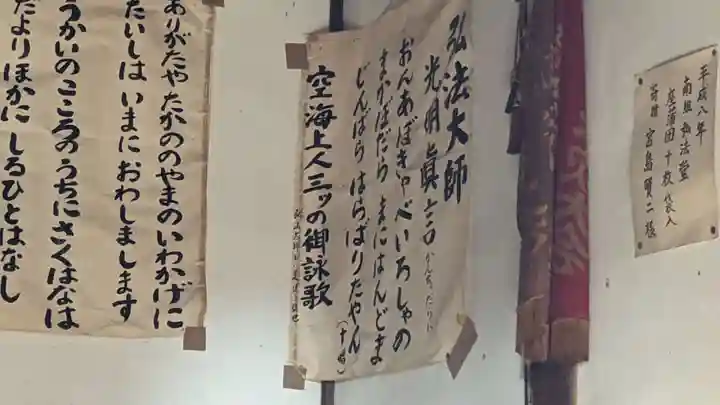 平成八年
南組弘法堂
座蒲団十枚袋入
寄贈 宮島賢二様
弘法大師
光明真言
おんあぼきゃべいろしゃの
まかぼだら まにはんどま
じんばら はらばりたやん
空海上人三ッの御詠歌
ありがたや たかののやまの いわかげに
たいしは いまに おわしまします
うかいの こころのうちに さくはなは
だより ほかに しるひとはなし